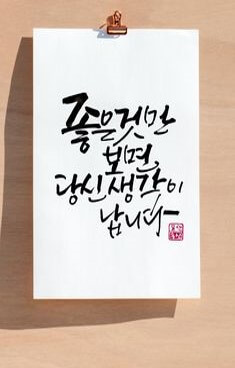 좋은것만
보면,
당신생각이
납니다